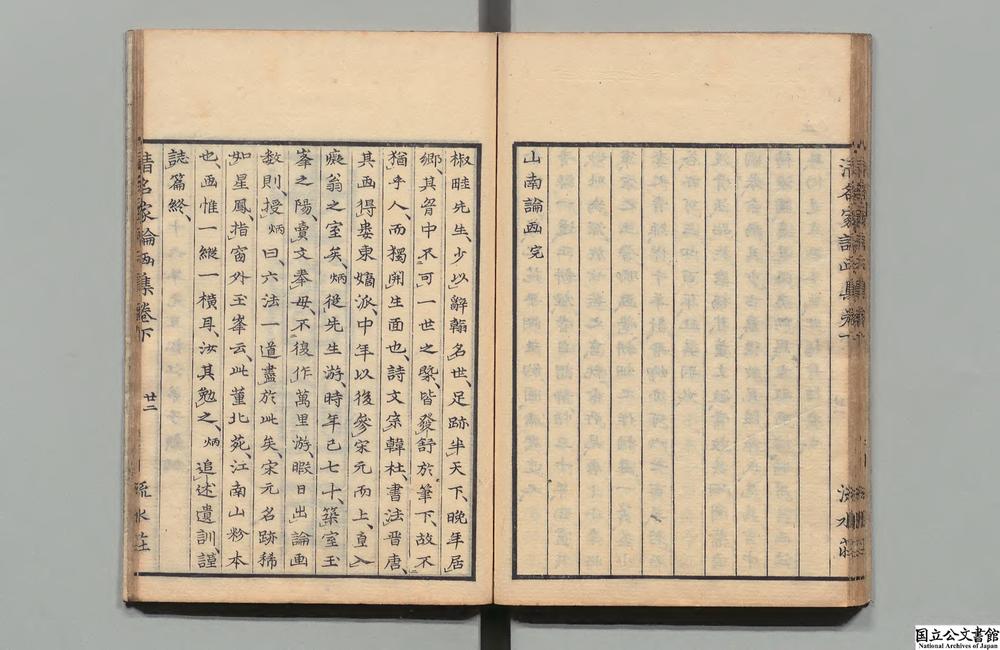 山南論画完
椒畦先生、少以辭翰名世、足跡半天下、晩年居
郷、其胷中不可一世之槩、皆發舒於筆下、故不
猶乎人、而獨開生面也、詩文宗韓杜、書法晋唐、
其画得婁東嫡派、中年以後參宋元而上、直入
癡翁之室矣、炳從先生游、時年已七十、築室玉
峯之陽、賣文奉母、不復作萬里游、暇日出論画
数則、授炳曰、六法一道盡於此矣、宋元名跡稀
如星鳳、指窗外玉峯云、此董北苑、江南山粉本
也、画惟一縱一橫耳、汝其勉之、炳追述遺訓、謹
誌篇終、
清名家論画集卷下 廿二 流水莊
国立公文書館
National Archives of Japan